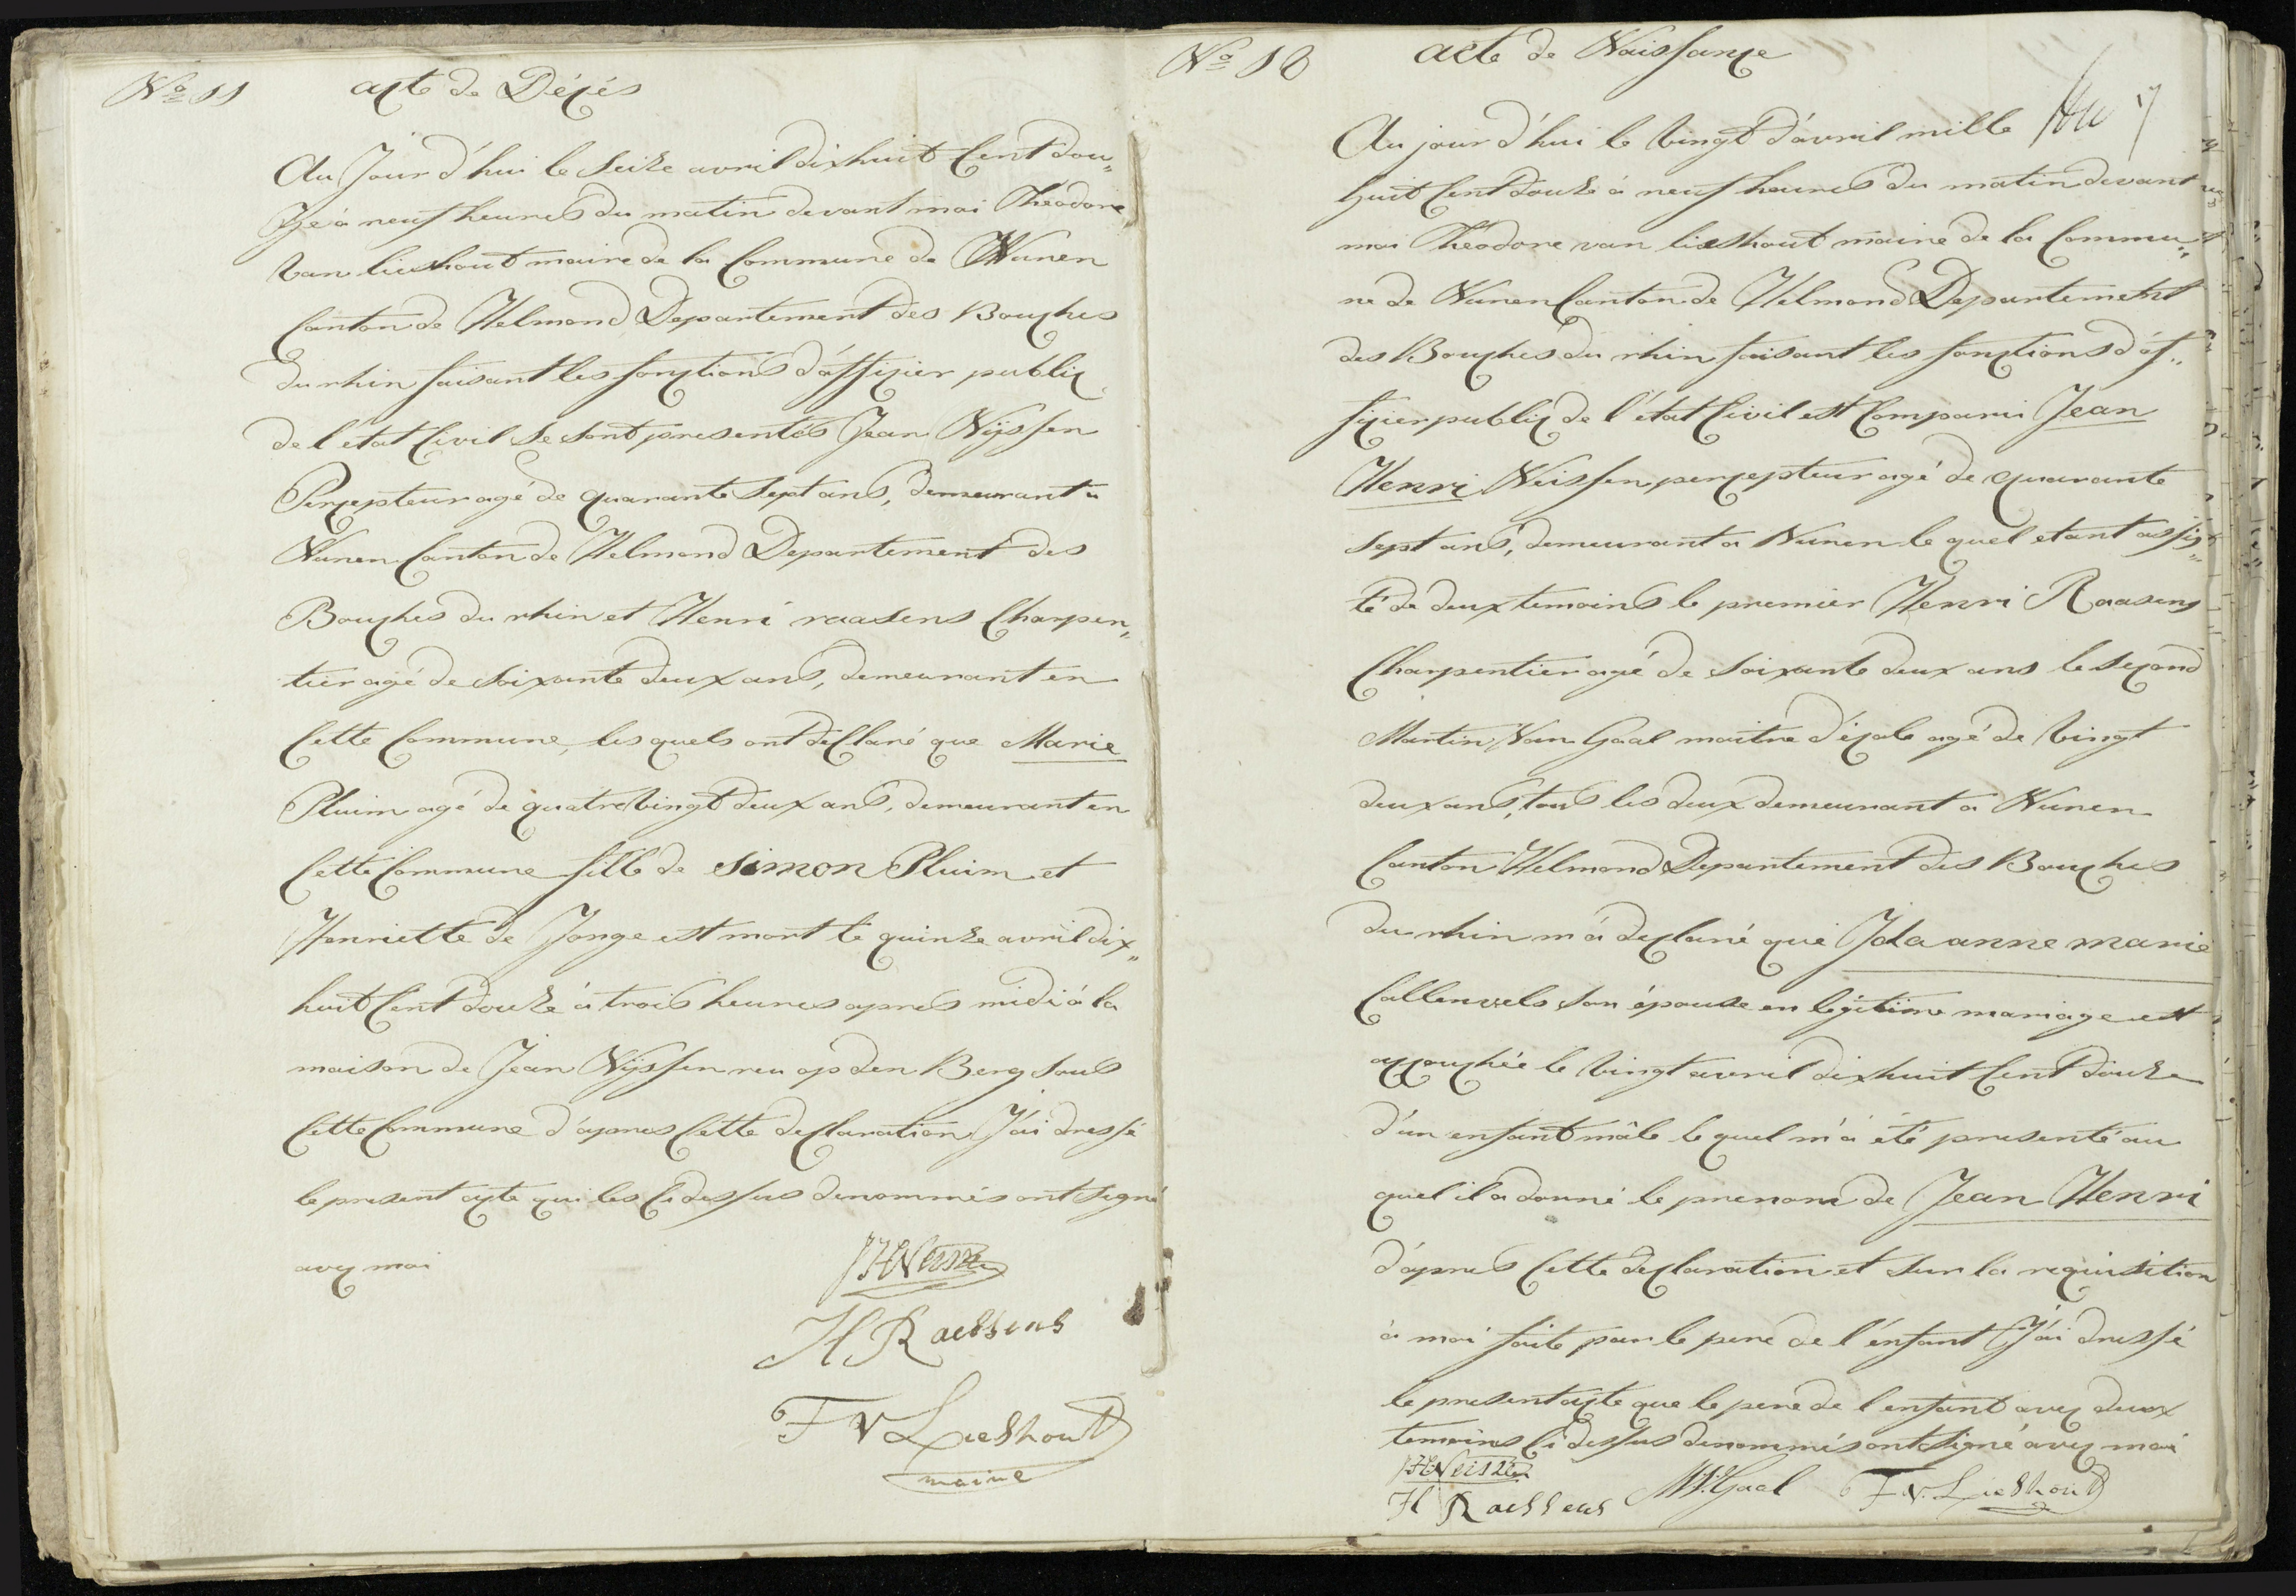 No 11 acte de Décés
Au Jour d'hui le Seize avril dixhuit Cent dou„
Ze à neuf heures du matin devant moi Théodore
Van lieshout maire de la Commune de Nunen
Canton de Helmond Departement des Bouches
du rhin faisant les fonctions d'officier public
de l'etat Civil Se sont presentés Jean Nijssen
Percepteur agé de quarante Sept ans, demeurant a
Nunen Canton de Helmond Departement des
Bouches du rhin et Henri raasens Charpen„
tier agé de Soixante deux ans, demeurant en
Cette Commune, les quels ont déClaré que Marie
Pluim agé de quatre Vingt deux ans, demeurant en
Cette Commune fille de Simon Pluim et
Henriette de Jonge est mort le quinze avril dix„
huit Cent douze à trois heures apres midi à la
maison de Jean Nijssen rue op den Berg Sous
Cette Commune d'apres Cette declaration J'ai dressé
le present acte qui les Ci dessus denommés ont Signé
avec moi
JHNeissen
H Raessens
T V Lieshout
maire
No 10 acte de Naissance
Au jour d'hui le Vingt d'avril mille
huit Cent douze à neuf heures du matin devant
moi Théodore van lieshout maire de la Commu„
ne de Nunen Canton de Helmond Departement
des Bouches du rhin faisant les fonctions d'of„
ficier public de l'état Civil est Comparu Jean
Henri Neissen percepteur agé de quarante
Sept ans, demeurant a Nunen le quel etant assis„
té de deux temoins le premier Henri Raasens
Charpentier agé de Soixante deux ans le Second
Martin Van Gaal maitre d'école agé de Vingt
deux ans, tous les deux demeurant a Nunen
Canton Helmond Departement des Bouches
du rhin m'a declaré que Ida anne marie
Callenvels Son épouse en légitime mariage est
accouchée le Vingt avril dixhuit Cent douze
d'un enfant mâle le quel m'a été presenté au
quel il a donné le prenom de Jean Henri
d'apres Cette declaration et Sur la requisition
à moi faite par le pere de l'enfant J'ai dressé
le present acte que le pere de l'enfant avec deux
temoins Ci dessus denommés ont Signé avec moi
JHNeissen
H Raessens MV.Gaal T V. Lieshout